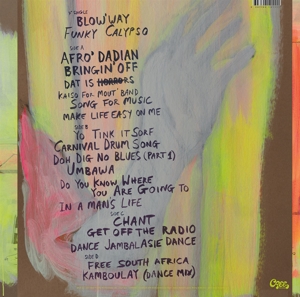 7" SINGLE
BLOW'WAY
FUNKY CALYPSO
SIDE A
AFRO' DADIAN
BRINGIN' OFF
DAT IS HORRORS
KAISO FOR MOUT' BAND
SONG FOR MUSIC
MAKE LIFE EASY ON ME
SIDE B
YO TINK IT SORF
CARNIVAL DRUM SONG
DOH DIG NO BLUES (PART 1)
UMBAWA
DO YOU KNOW WHERE
YOU ARE GOING TO
IN A MANS LIFE
SIDE C
CHANT
GET OFF THE RADIO
DANCE JAMBALASIE DANCE
SIDE D
FREE SOUTH AFRICA
KAMBOULAY (DANCE MIX)